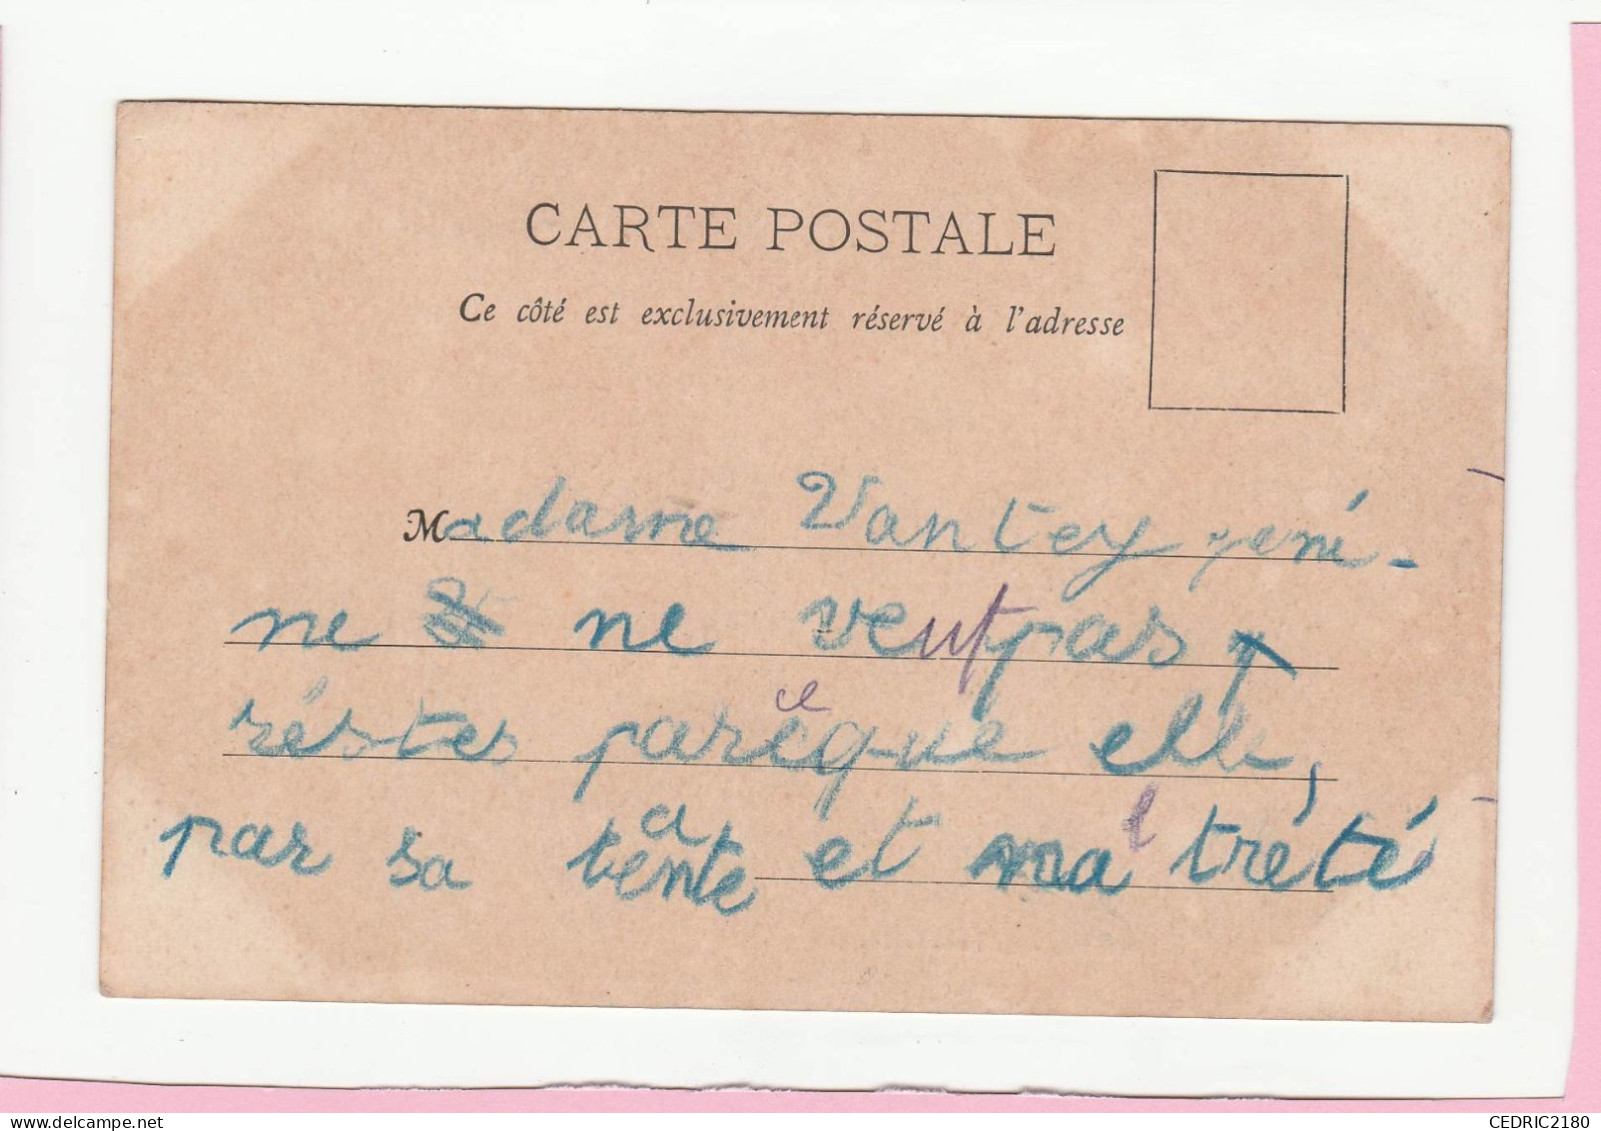 CARTE POSTALE
Ce côté est exclusivement réservé à l'adresse
Madame Vantey yeni-
ne ne veut pas y
réstes parceque elle,
par sa tante et mal trété
CEDRIC2180